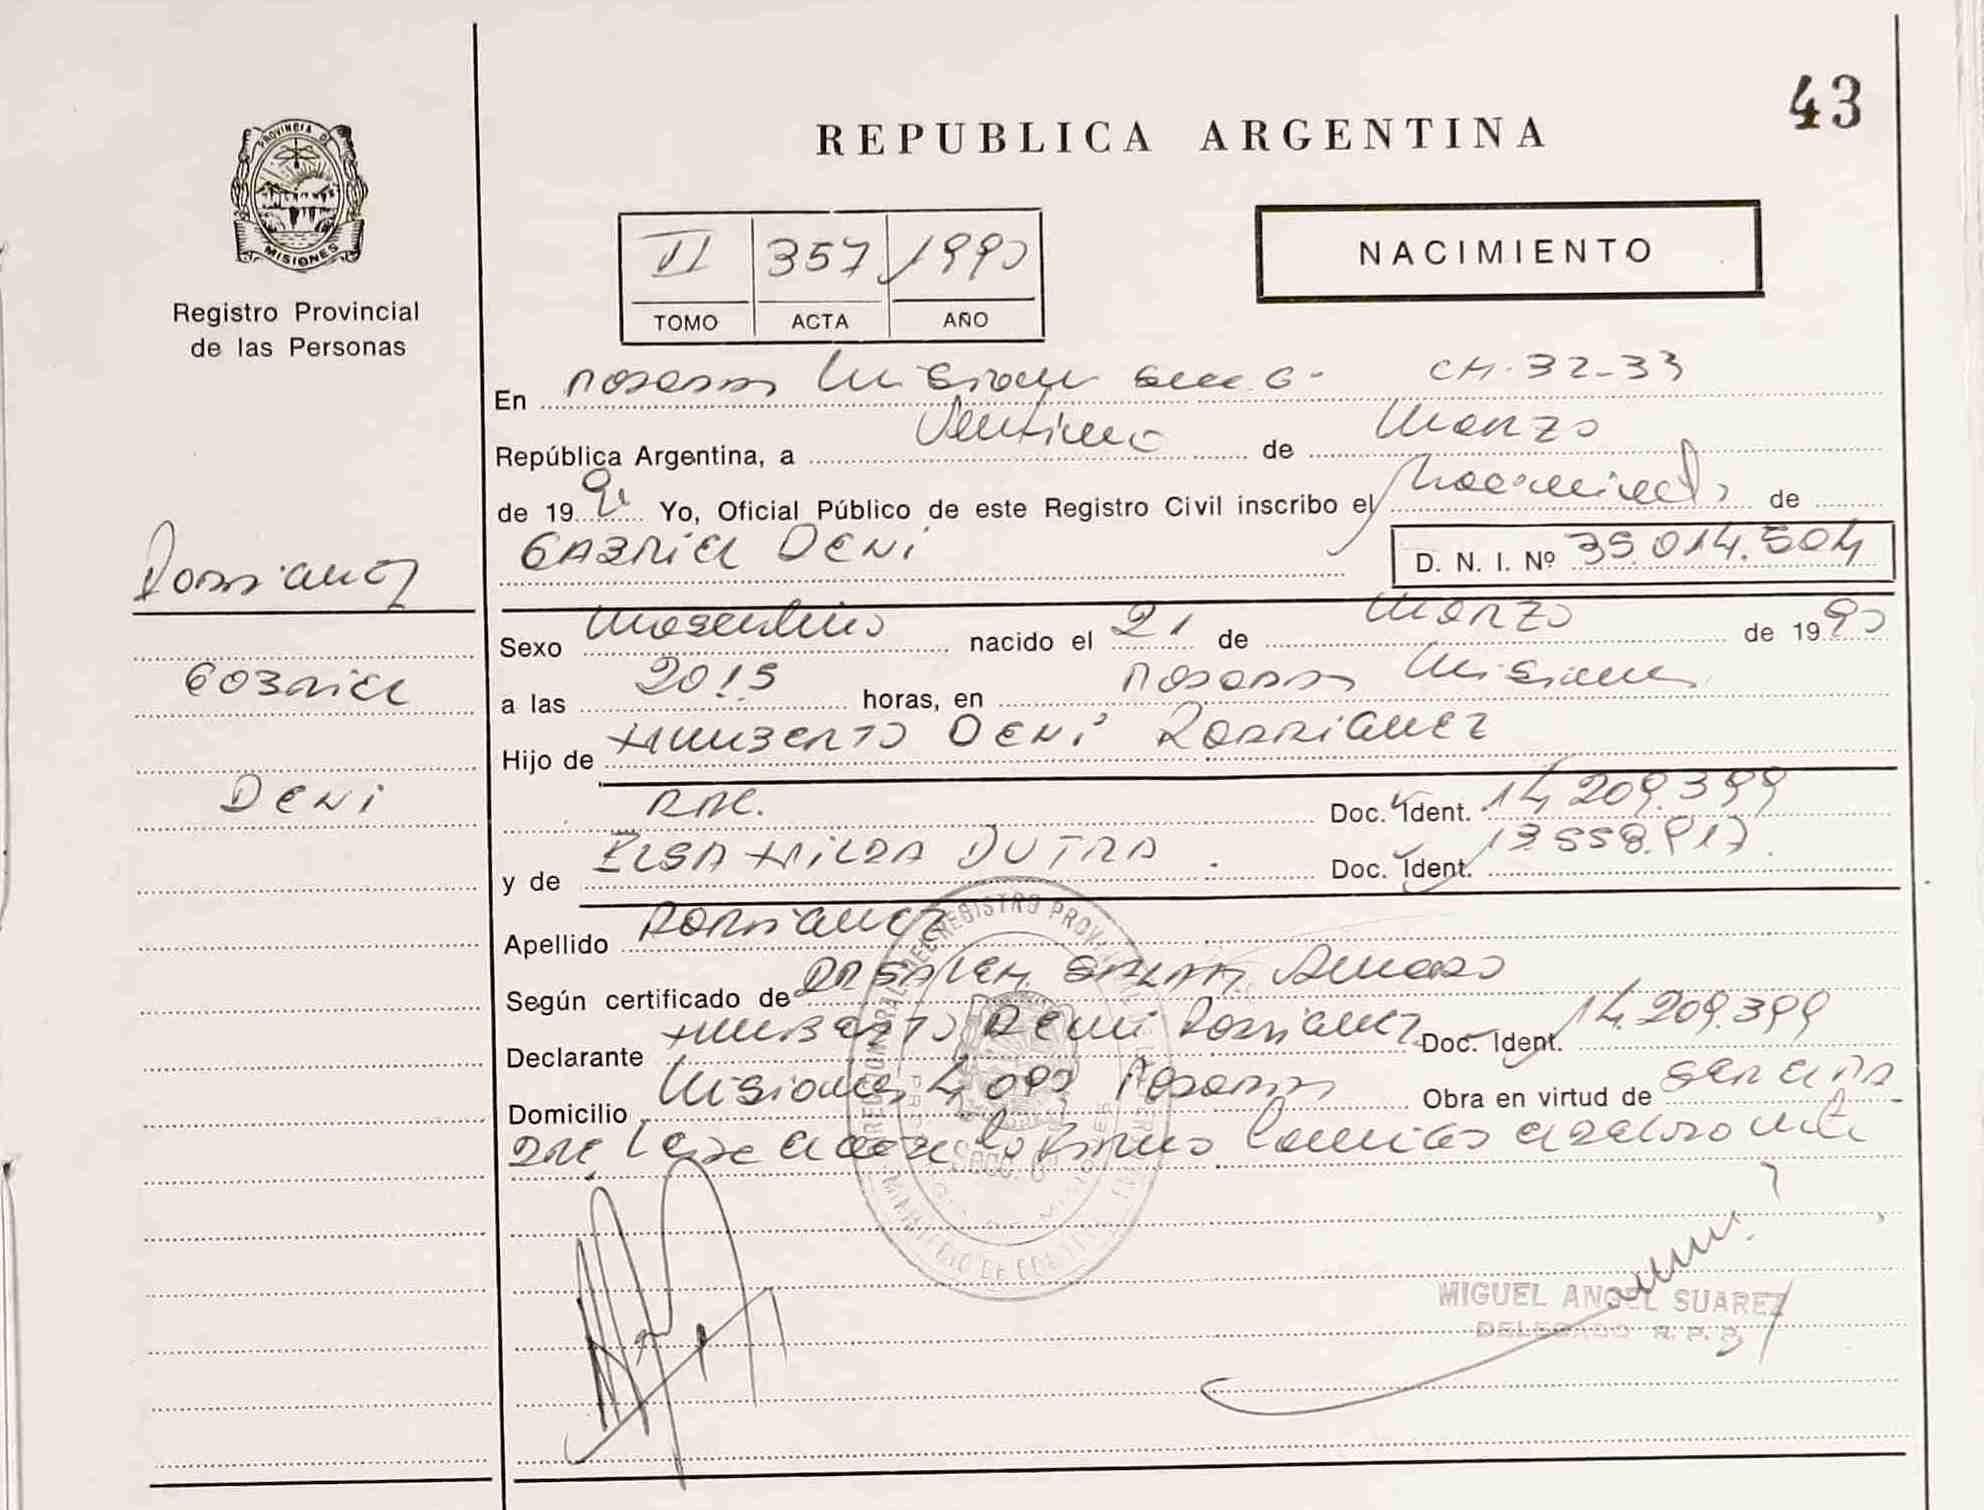 43
REPUBLICA ARGENTINA
PROVINCIA DE
MISIONES
Registro Provincial
de las Personas
II 357 1990
TOMO ACTA AÑO
NACIMIENTO
En Posadas Misiones Secc 6- CH. 32-33
República Argentina, a de Marzo
de 19 Yo, Oficial Público de este Registro Civil inscribo el Nacimiento de
GABRIEL DENI D. N. I. Nº 35.014.504
Rodriguez
Gabriel
Deni
Sexo Masculino nacido el 21 de Marzo de 1990
a las 2015 horas, en Posadas Misiones
Hijo de HUMBERTO DENI RODRIGUEZ
Doc. Ident. 14.209.399
y de ELSA HILDA DUTRA Doc. Ident. 13.558.917
Apellido Rodriguez
Según certificado de
Declarante HUMBERTO DENI Rodriguez Doc. Ident. 14.209.399
Domicilio Misiones Posadas Obra en virtud de
MIGUEL ANGEL SUAREZ
DELEGADO R. P. P.